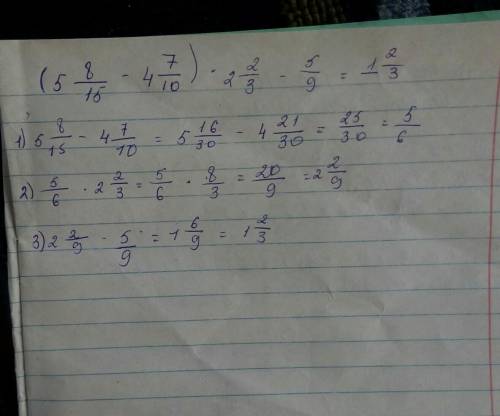 (5 8/15 - 4 7/10) · 2 2/3 - 5/9 = 1 2/3
1) 5 8/15 - 4 7/10 = 5 16/30 - 4 21/30 = 25/30 = 5/6
2) 5/6 · 2 2/3 = 5/6 · 8/3 = 20/9 = 2 2/9
3) 2 2/9 - 5/9 = 1 6/9 = 1 2/3